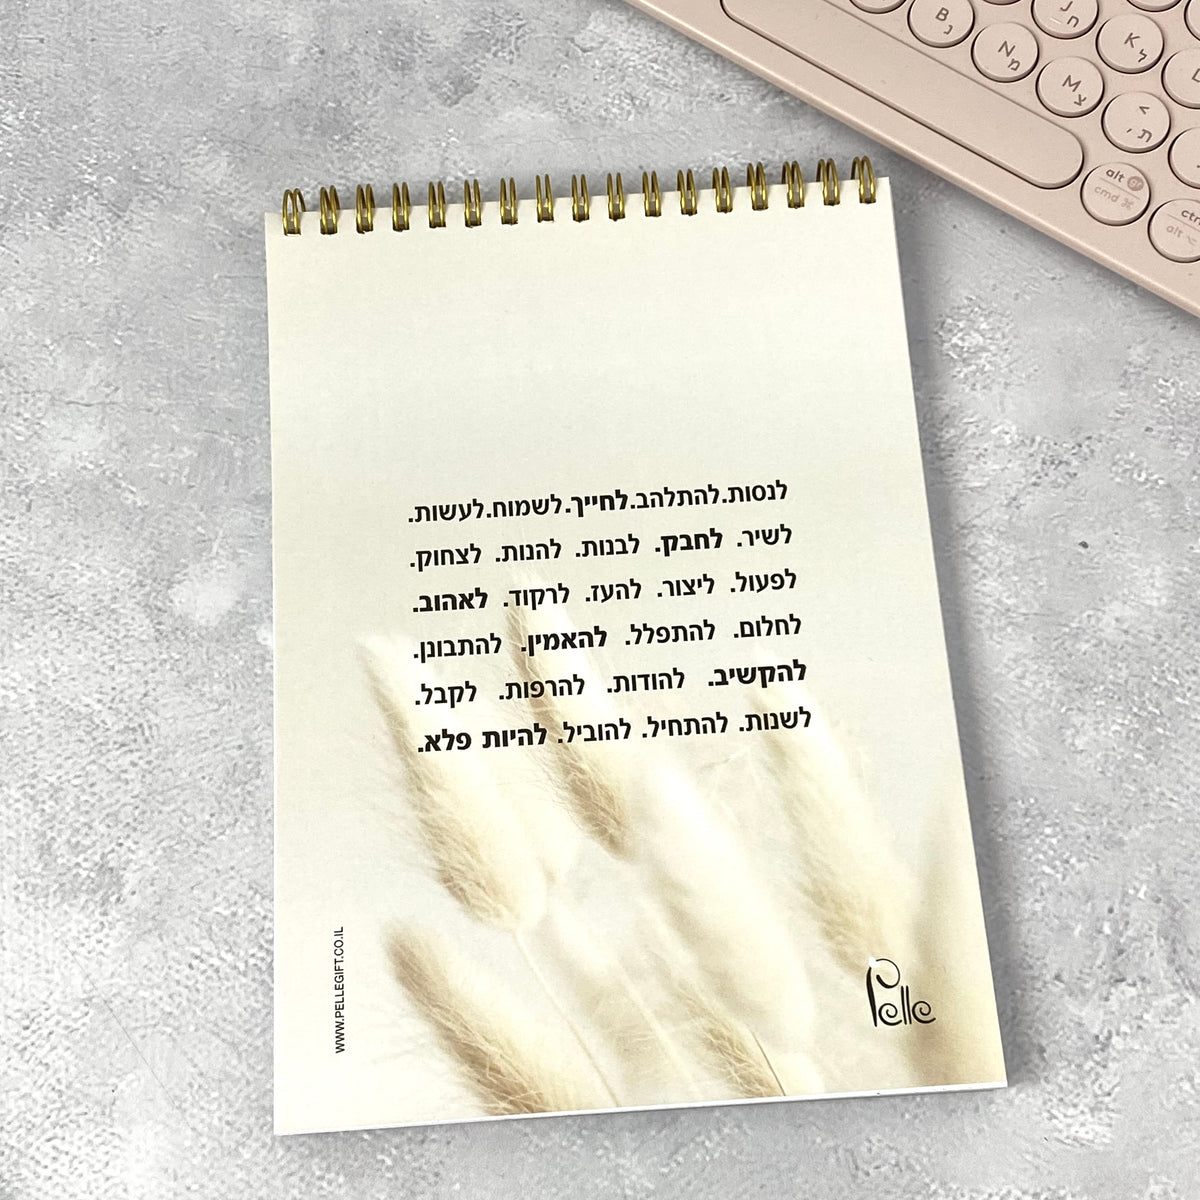 לנסות.להתלהב.לחייך.לשמוח.לעשות.
לשיר. לחבק. לבנות. להנות. לצחוק.
לפעול. ליצור. להעז. לרקוד. לאהוב.
לחלום. להתפלל. להאמין. להתבונן.
להקשיב. להודות. להרפות. לקבל.
לשנות. להתחיל. להוביל. להיות פלא.
WWW.PELLEGIFT.CO.IL
Pelle
B נ
N מ
J ח
M צ
K ל
< ת ,
alt gr
cmd ⌘
ctrl
alt ⌥